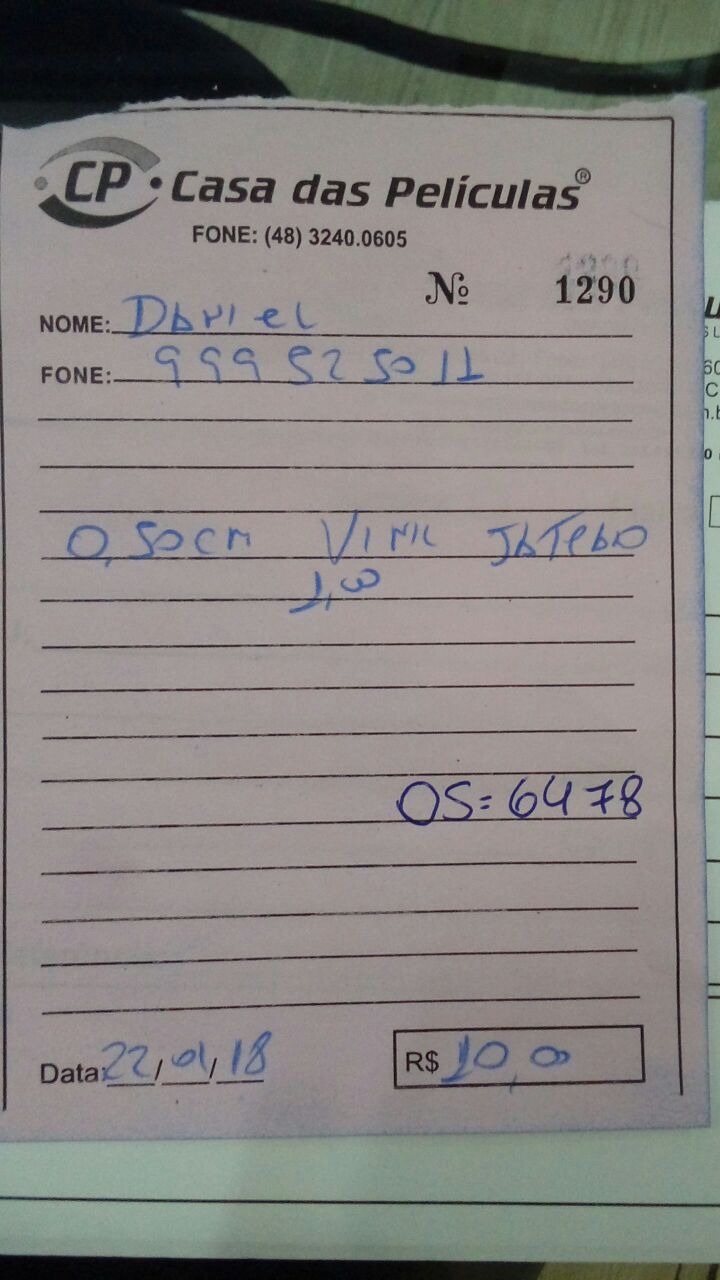 CP • Casa das Películas®
FONE: (48) 3240.0605
Nº 1290
NOME: Daniel
FONE: 999525011
0,50cm Vinil Jateado
1,00
OS= 6478
Data: 22/01/18 R$ 10,00